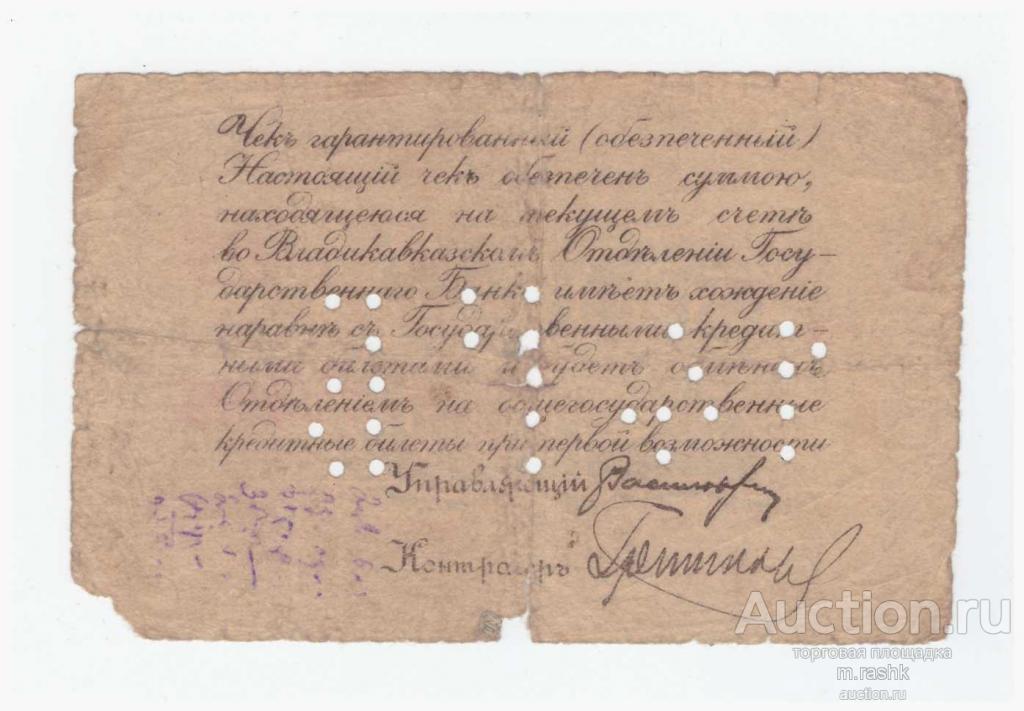 Чекъ гарантированный (обезпеченный)
Настоящій чекъ обезпеченъ суммою,
находящеюся на текущемъ счетѣ
во Владикавказскомъ Отдѣленіи Госу-
дарственнаго Банка имѣетъ хожденіе
наравнѣ съ Государственными кредит-
ными билетами и будетъ обмѣненъ
Отдѣленіемъ на общегосударственные
кредитные билеты при первой возможности
Управляющій
Контролеръ
Auction.ru
торговая площадка
m.rashk
auction.ru